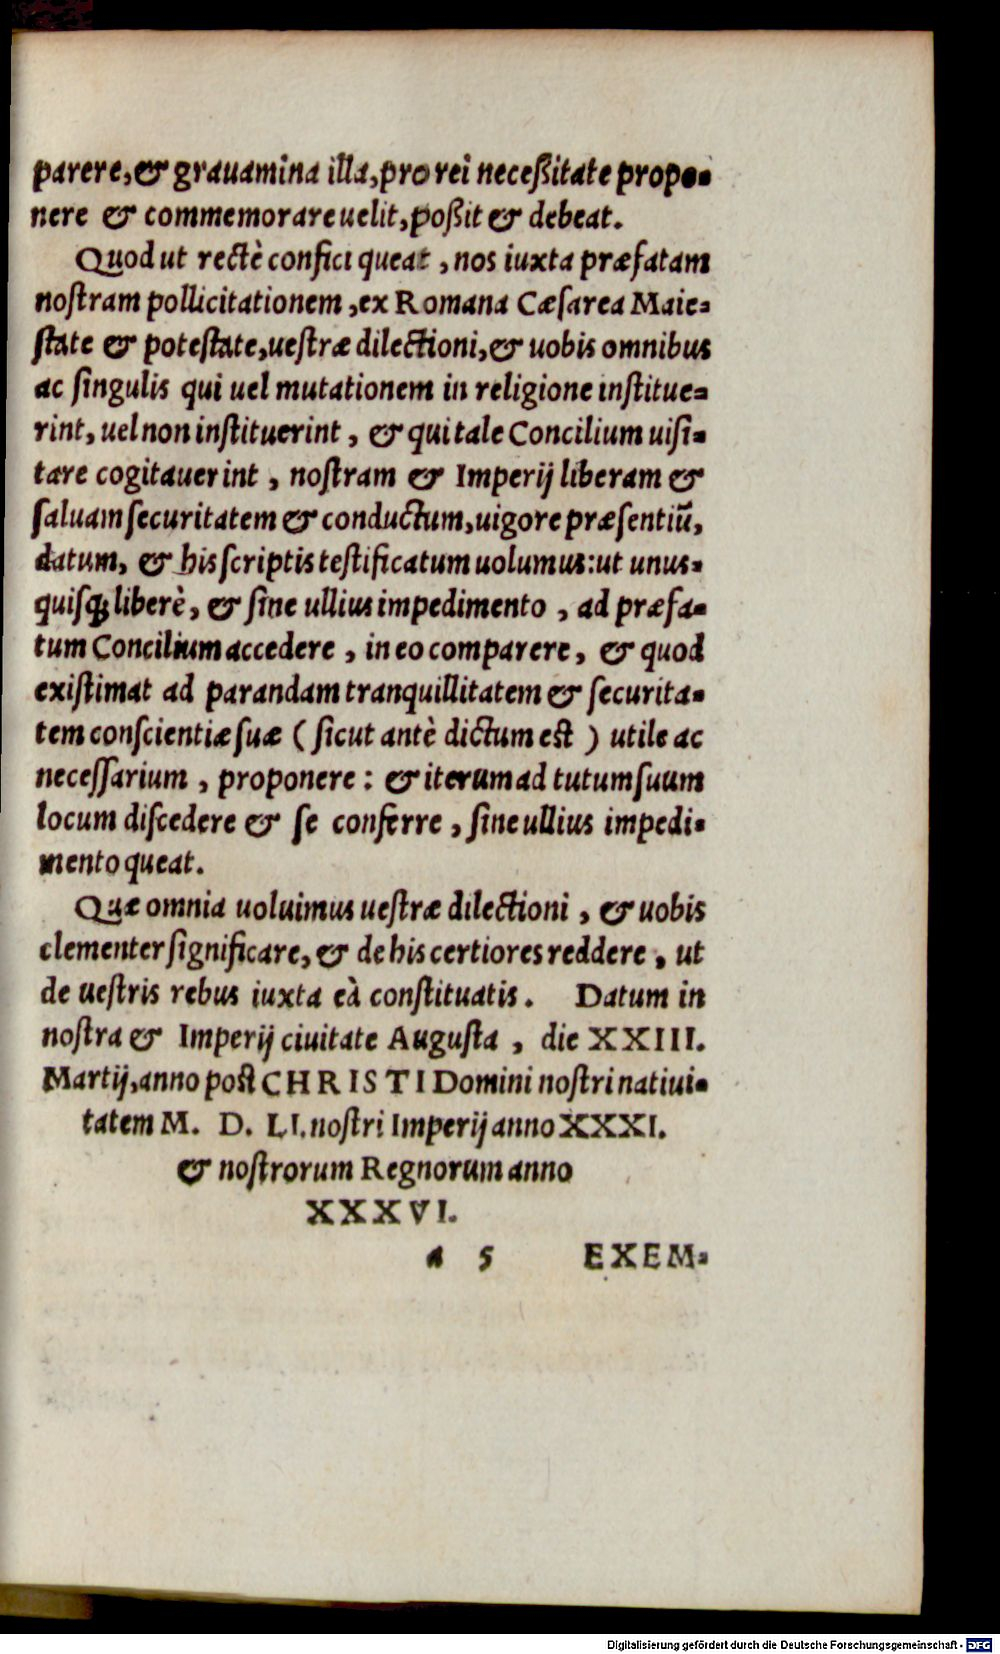 parere, & grauamina illa, pro rei neceßitate propo-
nere & commemorare uelit, poßit & debeat.
Quod ut rectè confici queat, nos iuxta præfatam
nostram pollicitationem, ex Romana Cæsarea Maie-
state & potestate, uestræ dilectioni, & uobis omnibus
ac singulis qui uel mutationem in religione institue-
rint, uel non instituerint, & qui tale Concilium uisi-
tare cogitauerint, nostram & Imperij liberam &
saluam securitatem & conductum, uigore præsentiũ,
datum, & his scriptis testificatum uolumus: ut unus-
quisq; liberè, & sine ullius impedimento, ad præfa-
tum Concilium accedere, in eo comparere, & quod
existimat ad parandam tranquillitatem & securita-
tem conscientiæ suæ (sicut antè dictum est) utile ac
necessarium, proponere: & iterum ad tutum suum
locum discedere & se conferre, sine ullius impedi-
mento queat.
Quæ omnia uoluimus uestræ dilectioni, & uobis
clementer significare, & de his certiores reddere, ut
de uestris rebus iuxta eà constituatis. Datum in
nostra & Imperij ciuitate Augusta, die XXIII.
Martij, anno post CHRISTI Domini nostri natiui-
tatem M. D. LI. nostri Imperij anno XXXI.
& nostrorum Regnorum anno
XXXVI.
a 5 EXEM-
Digitalisierung gefördert durch die Deutsche Forschungsgemeinschaft - DFG